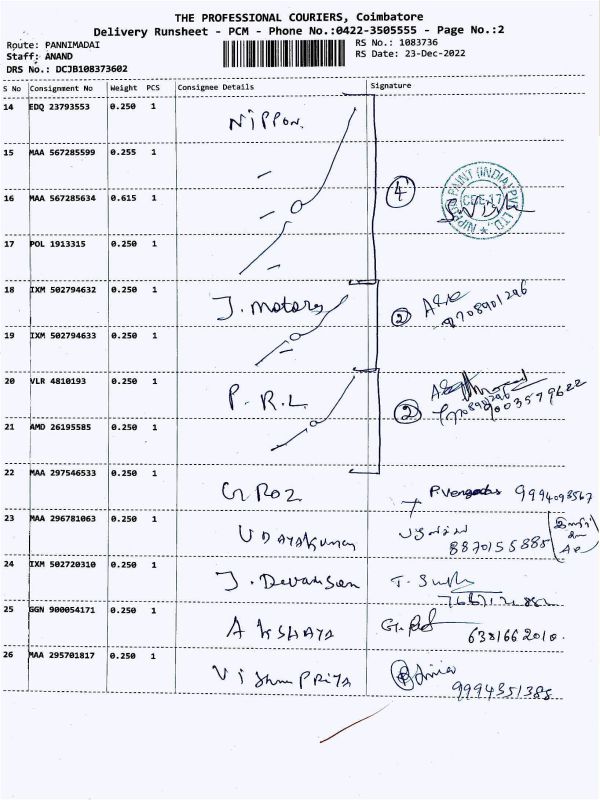 THE PROFESSIONAL COURIERS, Coimbatore
Delivery Runsheet - PCM - Phone No.:0422-3505555 - Page No.:2
Route: PANNIMADAI
Staff: ANAND
DRS No.: DCJB108373602
RS No.: 1083736
RS Date: 23-Dec-2022
S No Consignment No Weight PCS Consignee Details Signature
14 EDQ 23793553 0.250 1 NIPPON.
15 MAA 567285599 0.255 1
16 MAA 567285634 0.615 1 4
NIPPON PAINT (INDIA) PVT. LTD.
17 POL 1913315 0.250 1
18 IXM 502794632 0.250 1 J. Motors 2
19 IXM 502794633 0.250 1
20 VLR 4810193 0.250 1 P. R. L 2 9003579622
21 AMD 26195585 0.250 1
22 MAA 297546533 0.250 1 GROZ
23 MAA 296781063 0.250 1 UDAYAKUMAR 8870155885
24 IXM 502720310 0.250 1
25 GGN 900054171 0.250 1 AKSHAYA 6381662010.
26 MAA 295701817 0.250 1 Vishnu PRIYA 9994351385